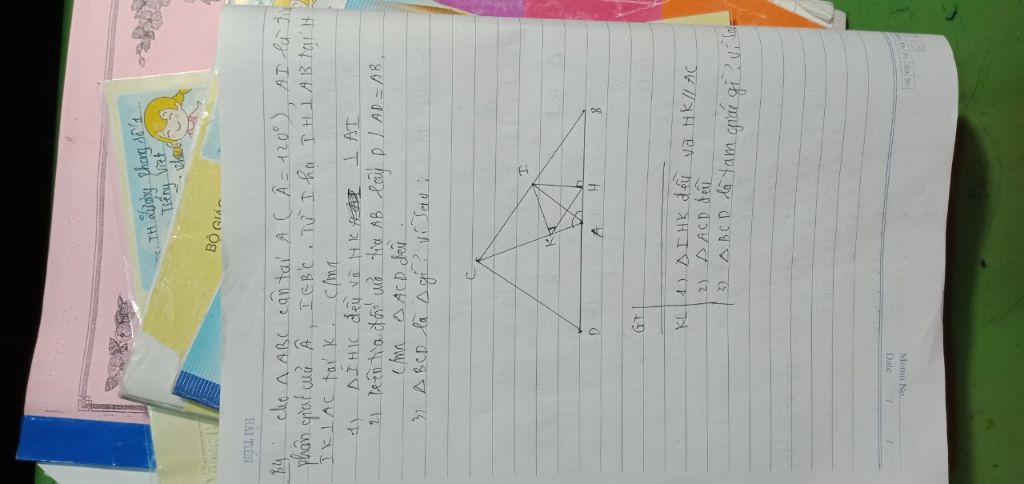 Bài cho △ ABC cân tại A ( Â = 120°), AI là tia
phân giác của Â, I∈BC. Từ I hạ IH⊥AB tại H
IK⊥AC tại K. C/m
1) △ IHK đều và HK ⊥ AI
2) trên tia đối của tia AB lấy D / AD = AB.
C/m △ ACD đều.
3) △ BCD là △ gì? vì sao?
C
I
K
D
A
H
B
GT
KL
1) △ IHK đều và HK // AC
2) △ ACD đều
3) △ BCD là tam giác gì? vì sao
HẢI TIẾN
Memo No.
Date / /
TH
Tiếng Việt
BỘ GIÁO